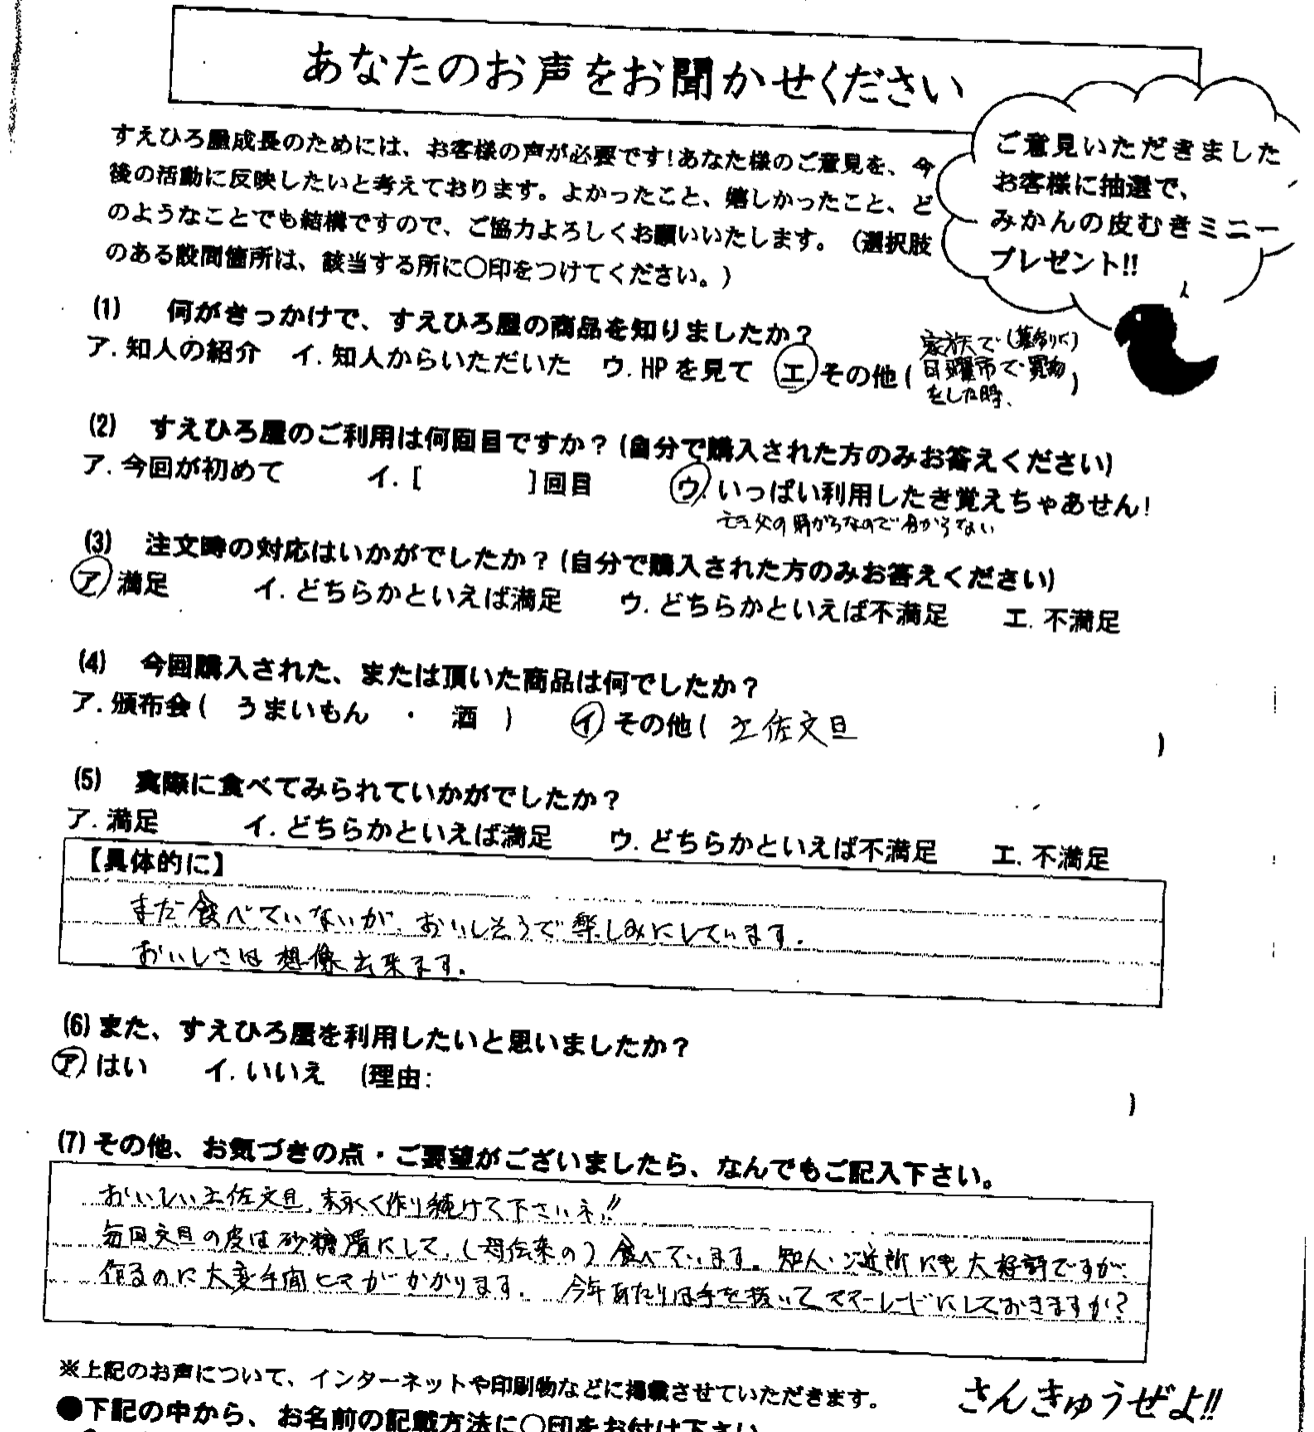 あなたのお声をお聞かせください
すえひろ屋成長のためには、お客様の声が必要です!あなた様のご意見を、今
後の活動に反映したいと考えております。よかったこと、嬉しかったこと、ど
のようなことでも結構ですので、ご協力よろしくお願いいたします。（選択肢
のある設問箇所は、該当する所に○印をつけてください。）
ご意見いただきました
お客様に抽選で、
みかんの皮むきミニー
プレゼント!!
(1) 何がきっかけで、すえひろ屋の商品を知りましたか？
ア. 知人の紹介 イ. 知人からいただいた ウ. HPを見て エ. その他 (家族で(墓参りに)
日曜市で買物
をした時、)
(2) すえひろ屋のご利用は何回目ですか？(自分で購入された方のみお答えください)
ア. 今回が初めて イ. [ ]回目 ウ. いっぱい利用したき覚えちゃあせん!
亡き父の時からなので分からない
(3) 注文時の対応はいかがでしたか？(自分で購入された方のみお答えください)
ア. 満足 イ. どちらかといえば満足 ウ. どちらかといえば不満足 エ. 不満足
(4) 今回購入された、または頂いた商品は何でしたか？
ア. 頒布会 ( うまいもん ・ 酒 ) イ. その他 ( 土佐文旦 )
(5) 実際に食べてみられていかがでしたか？
ア. 満足 イ. どちらかといえば満足 ウ. どちらかといえば不満足 エ. 不満足
【具体的に】
まだ食べていないが、おいしそうで楽しみにしています。
おいしさは想像出来ます。
(6) また、すえひろ屋を利用したいと思いましたか？
ア. はい イ. いいえ (理由: )
(7) その他、お気づきの点・ご要望がございましたら、なんでもご記入下さい。
おいしい土佐文旦、末永く作り続けて下さいネ!!
毎回文旦の皮は砂糖漬にして、(母伝来の) 食べています。知人・ご近所にも大好評ですが、
作るのに大変手間ヒマがかかります。 今年あたりは手を抜いてママーレードにしておきますか?
※上記のお声について、インターネットや印刷物などに掲載させていただきます。
さんきゅうぜよ!!
●下記の中から、お名前の記載方法に○印をお付け下さい